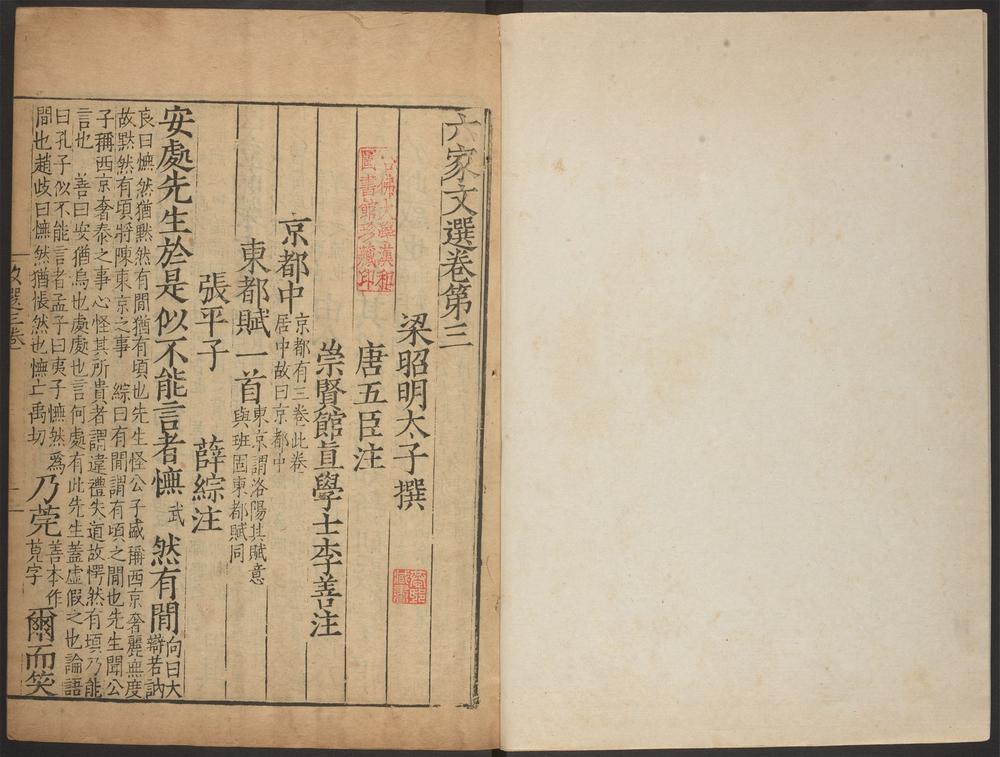 六家文選卷第三
梁昭明太子撰
唐五臣注
崇賢館直學士李善注
京都中京都有三卷此卷居中故曰京都中
東都賦一首東京謂洛陽其賦意與班固東都賦同
張平子 薛綜注
安處先生於是似不能言者憮武然有閒向曰大辯若訥
良曰憮然猶黙然有閒猶有頃也先生怪公子盛稱西京奢麗無度
故黙然有頃將陳東京之事 綜曰有閒謂有頃之閒也先生聞公
子稱西京奢泰之事心怪其所貴者謂違禮失道故愕然有頃乃能
言也 善曰安猶烏也處處也言何處有此先生蓋虛假之也論語
曰孔子似不能言者孟子曰夷子憮然爲
間也趙歧曰憮然猶悵然也憮亡禹切
乃莞善本作莧字爾而笑
文選三卷
哈佛大學漢和圖書館珍藏印